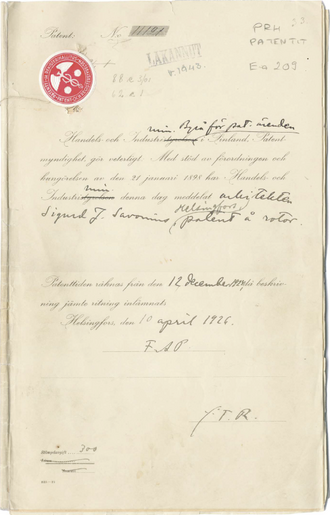 Patent No 11791
PRH
PATENTIT
E-a 209
LAKANNUT
min. Byrå för pat. ärenden
Handels och Industristyrelsen i Finland, Patent-
myndighet, gör veterligt: Med stöd av förordningen och
kungörelsen av den 21 januari 1898 har Handels och
Industri min. denna dag meddelat arkitekten
Sigurd J. Savonius, Helsingfors, patent å rotor.
Patenttiden räknas från den 12 december 1924, då beskriv-
ning jämte ritning inlämnats.
Helsingfors, den 10 april 1926.
F.A.P
J.T.R.
300